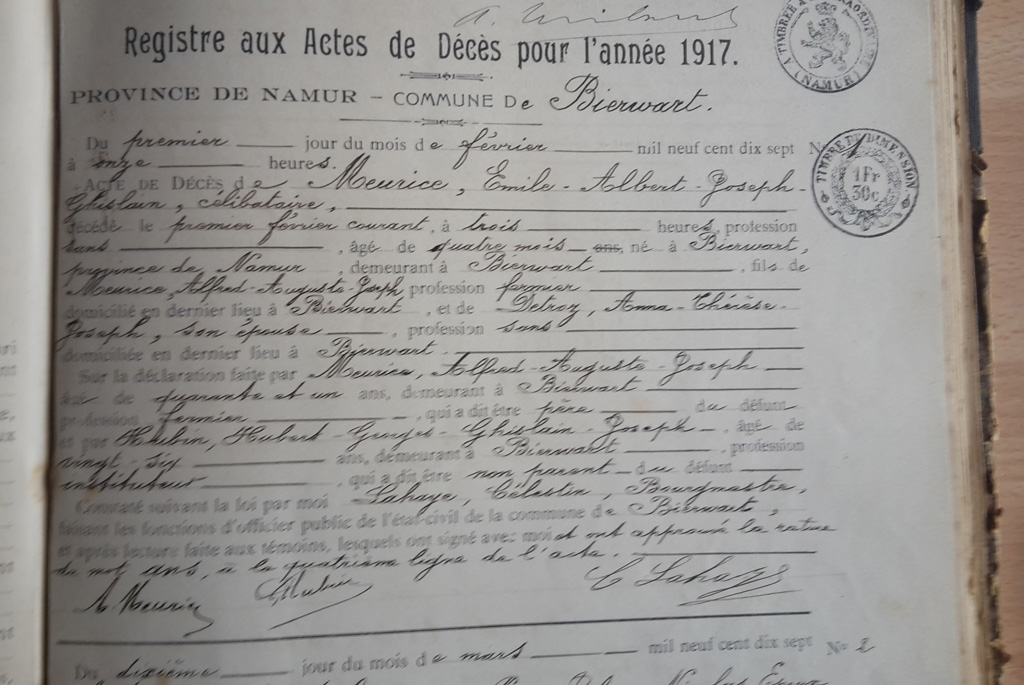 Registre aux Actes de Décès pour l'année 1917.
TIMBRÉ À L'EXTRAORDINAIRE (NAMUR)
PROVINCE DE NAMUR – COMMUNE De Bierwart.
Du premier jour du mois de février mil neuf cent dix sept No 1
à onze heures.
TIMBRE DE DIMENSION
1 Fr
30c
ACTE DE DÉCÈS de Meurice, Emile-Albert-Joseph-
Ghislain, célibataire,
décédé le premier février courant, à trois heures, profession
sans, âgé de quatre mois ans, né à Bierwart,
province de Namur, demeurant à Bierwart, fils de
Meurice, Alfred-Auguste-Joseph profession fermier
domicilié en dernier lieu à Bierwart, et de Detroz, Anna-Thérèse-
Joseph, son épouse, profession sans
domiciliée en dernier lieu à Bierwart.
Sur la déclaration faite par Meurice, Alfred-Auguste-Joseph
âgé de quarante et un ans, demeurant à Bierwart
profession fermier, qui a dit être père du défunt
et par Hubin, Hubert-Georges-Ghislain-Joseph, âgé de
vingt-six ans, demeurant à Bierwart, profession
instituteur, qui a dit être non parent du défunt
Constaté suivant la loi par moi Lahaye, Célestin, Bourgmestre,
faisant les fonctions d'officier public de l'état-civil de la commune de Bierwart,
et après lecture faite aux témoins, lesquels ont signé avec moi et ont approuvé la rature
du mot ans, à la quatrième ligne de l'acte.
A Meurice Hubin C Lahaye
Du dixième jour du mois de mars mil neuf cent dix sept No 2